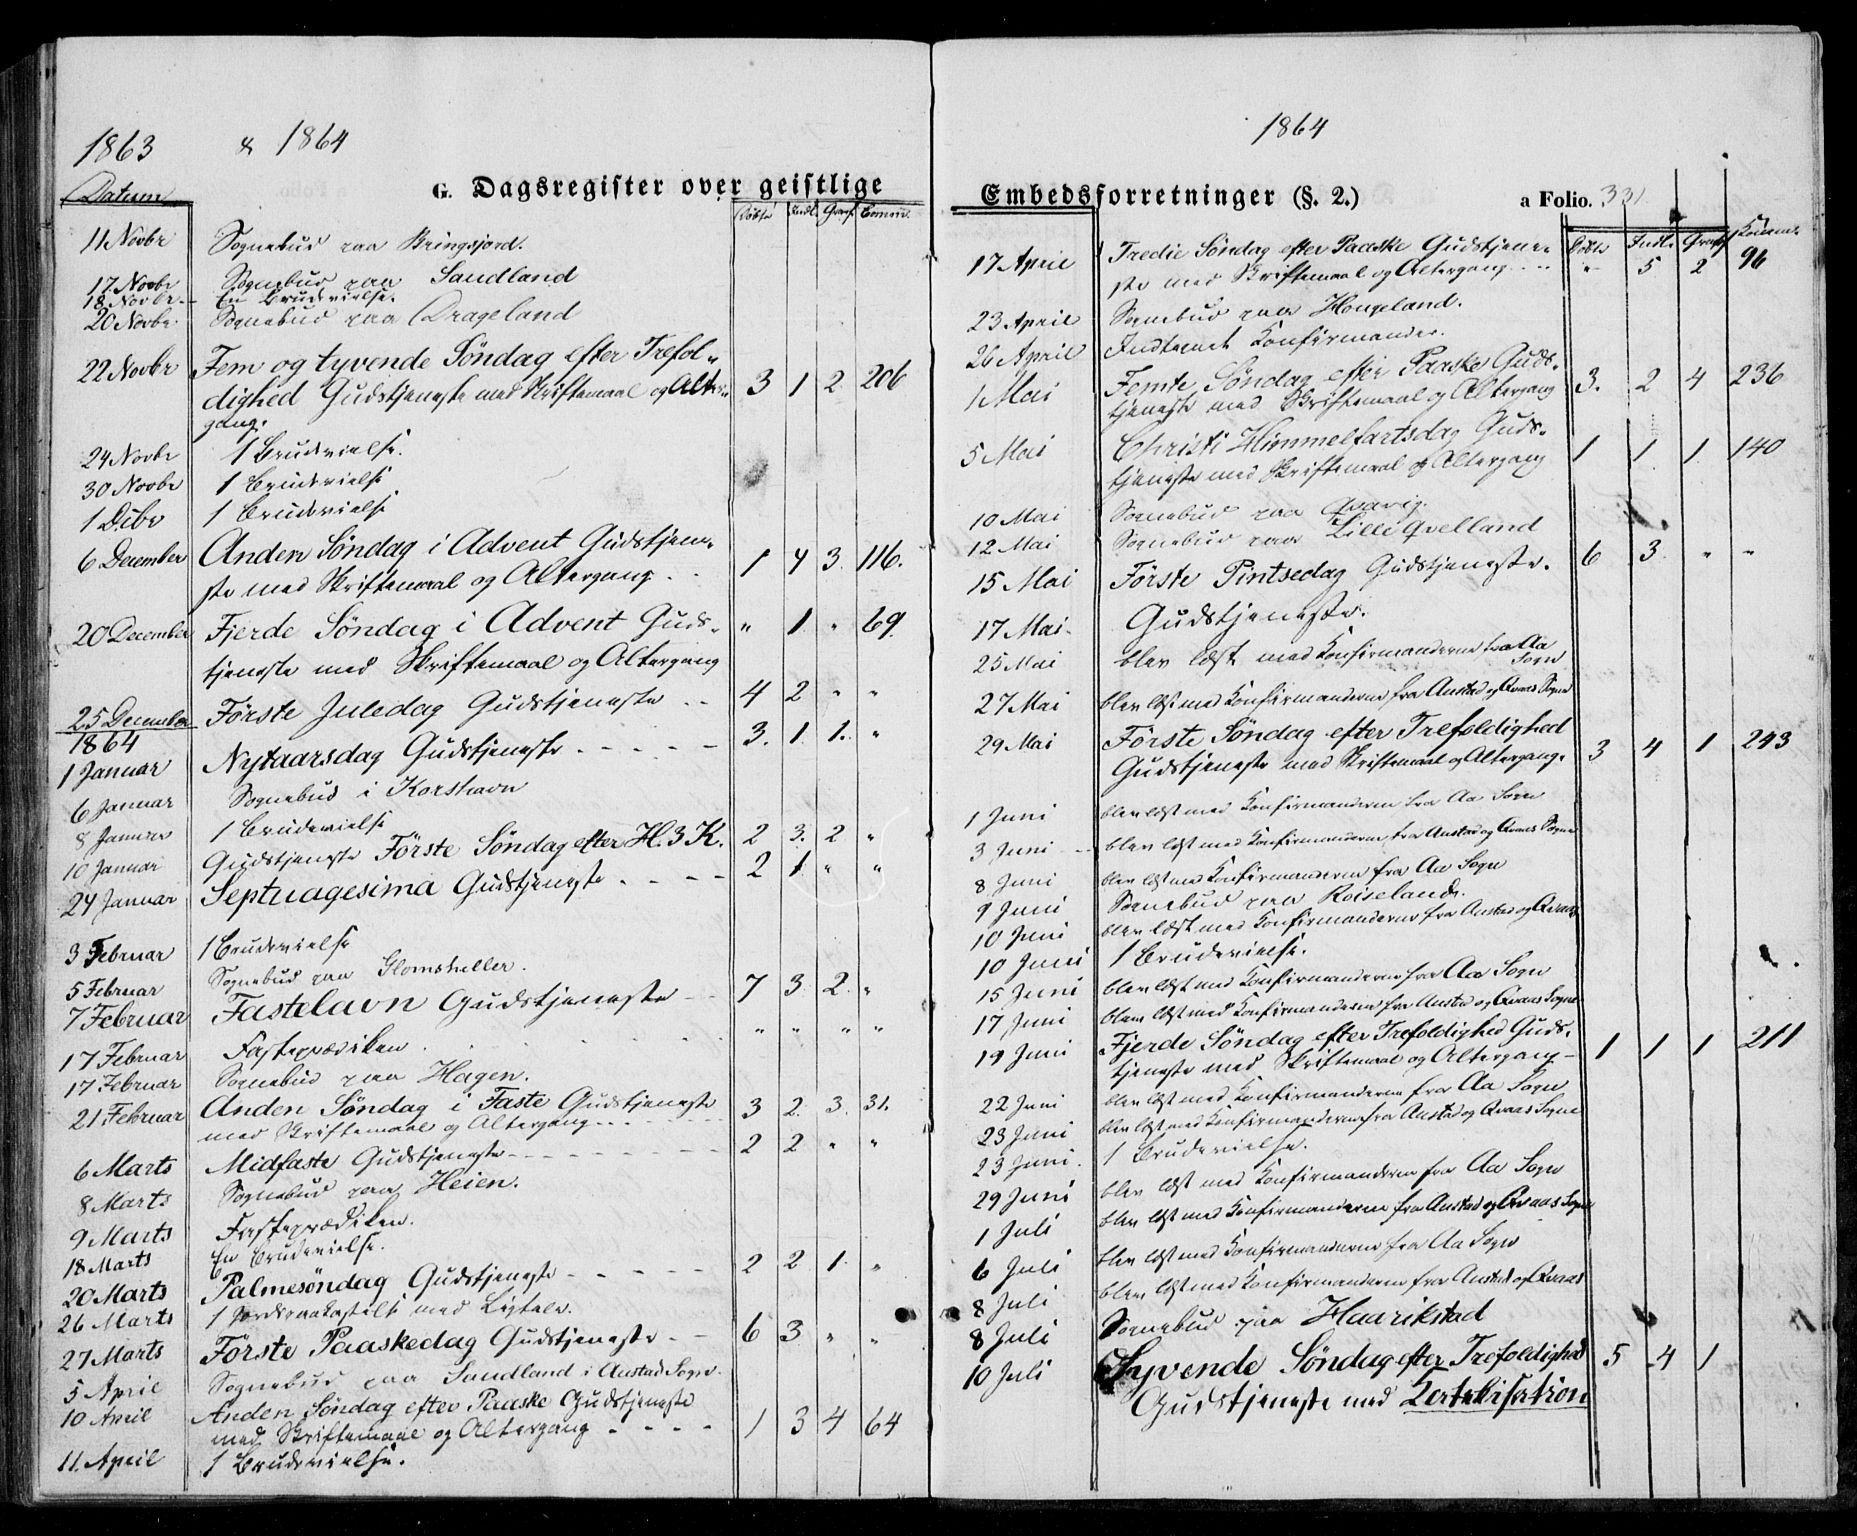 1863 & 1864
G. Dagsregister over geistlige
Datum Døbte Indl. Graf. Comm.
11 Novbr Sognebud paa Kringsjord.
17 Novbr Sognebud paa Sandland
18 Novbr En Brudevielse.
20 Novbr Sognebud paa Drageland
22 Novbr Fem og tyvende Søndag efter Trefol-
dighed Gudstjeneste med Skriftemaal og Alter- 3 1 2 206
gang.
24 Novbr 1 Brudevielse.
30 Novbr 1 Brudevielse
1 Dcbr 1 Brudevielse
6 December Anden Søndag i Advent Gudstjene-
ste med Skriftemaal og Altergang 1 4 3. 116.
20 December Fjerde Søndag i Advent Guds- " 1 " 69.
tjeneste med Skriftemaal og Altergang
25 December Første Juledag Gudstjeneste 4 2 " "
1864
1 Januar Nytaarsdag Gudstjeneste 3. 1. 1. "
6 Januar Sognebud i Korshavn
8 Januar 1 Brudevielse
10 Januar Gudstjeneste Første Søndag efter H. 3 K. 2 3. 2 "
24 Januar Septuagesima Gudstjeneste 2 1 " "
3 Februar 1 Brudevielse
5 Februar Sognebud paa Glomsheller.
7 Februar Fastelavn Gudstjeneste 7 3 2. "
17 Februar Fasteprædiken " " " "
17 Februar Sognebud paa Hagen.
21 Februar Anden Søndag i Faste Gudstjeneste 3 2. 3. 31.
med Skriftemaal og Altergang
6 Marts Midfaste Gudstjeneste 2 2 " "
8 Marts Sognebud paa Heien.
9 Marts Fasteprædiken.
18 Marts En Brudevielse.
20 Marts Palmesøndag Gudstjeneste 2 2 1. "
26 Marts 1 Jordpaakastelse med Ligtale.
27 Marts Første Paaskedag Gudstjeneste 6 3 " "
5 April Sognebud paa Sandland i Austad Sogn.
10 April Anden Søndag efter Paaske Gudstjeneste
med Skriftemaal og Altergang 1 3 4 64
11. April 1 Brudevielse.
1864
Embedsforretninger (§. 2.) a Folio. 331
Døbte Indl. Graf. Comm.
17 April Tredie Søndag efter Paaske Gudstjene-
ste med Skriftemaal og Altergang " 5 2 96
23 April Sognebud paa Hougeland.
26 April Indtegnet Konfirmander.
1 Mai Femte Søndag efter Paaske Guds- 3. 2 4 236
tjeneste med Skriftemaal og Altergang
5 Mai Christi Himmelfartsdag Guds- 1 1 1. 140
tjeneste med Skriftemaal og Altergang
10 Mai Sognebud paa Qvavig.
12 Mai Sognebud paa Lille Qvelland
15 Mai Første Pintsedag Gudstjeneste. 6 3. " "
17 Mai Gudstjeneste.
25 Mai blev læst med Konfirmanderne fra Aa
Sogn
27 Mai blev læst med Konfirmanderne fra Austad og Qvaas Sogne
29 Mai Første Søndag efter Trefoldighed
Gudstjeneste med Skriftemaal og Altergang. 3 4 1 243
1 Juni blev læst med Konfirmanderne fra Aa Sogn
3 Juni blev læst med Konfirmanderne fra Austad og Qvaas Sogne
8 Juni blev læst med Konfirmanderne fra Aa Sogn
9 Juni Sognebud paa Roiseland.
10 Juni blev læst med Konfirmanderne fra Austad og Qvaas
10 Juni 1 Brudevielse.
15 Juni blev læst med Konfirmanderne fra Aa Sogn
17 Juni blev læst med Konfirmanderne fra Austad og Qvaas Sogne
19 Juni Fjerde Søndag efter Trefoldighed Guds- 1 1 1 211
tjeneste med Skriftemaal og Altergang
22 Juni blev læst med Konfirmanderne fra Aa Sogn
23 Juni blev læst med Konfirmanderne fra Austad og Qvaas Sogne
23 Juni. 1 Brudevielse.
29 Juni blev læst med Konfirmanderne fra Aa Sogn
1 Juli blev læst med Konfirmanderne fra Austad og Qvaas Sogne
6 Juli blev læst med Konfirmanderne fra Aa Sogn
8 Juli blev læst med Konfirmanderne fra Austad og Qvaas
8 Juli Sognebud paa Haarikstad
10 Juli Syvende Søndag efter Trefoldighed 5 4 1
Gudstjeneste med Katekisation